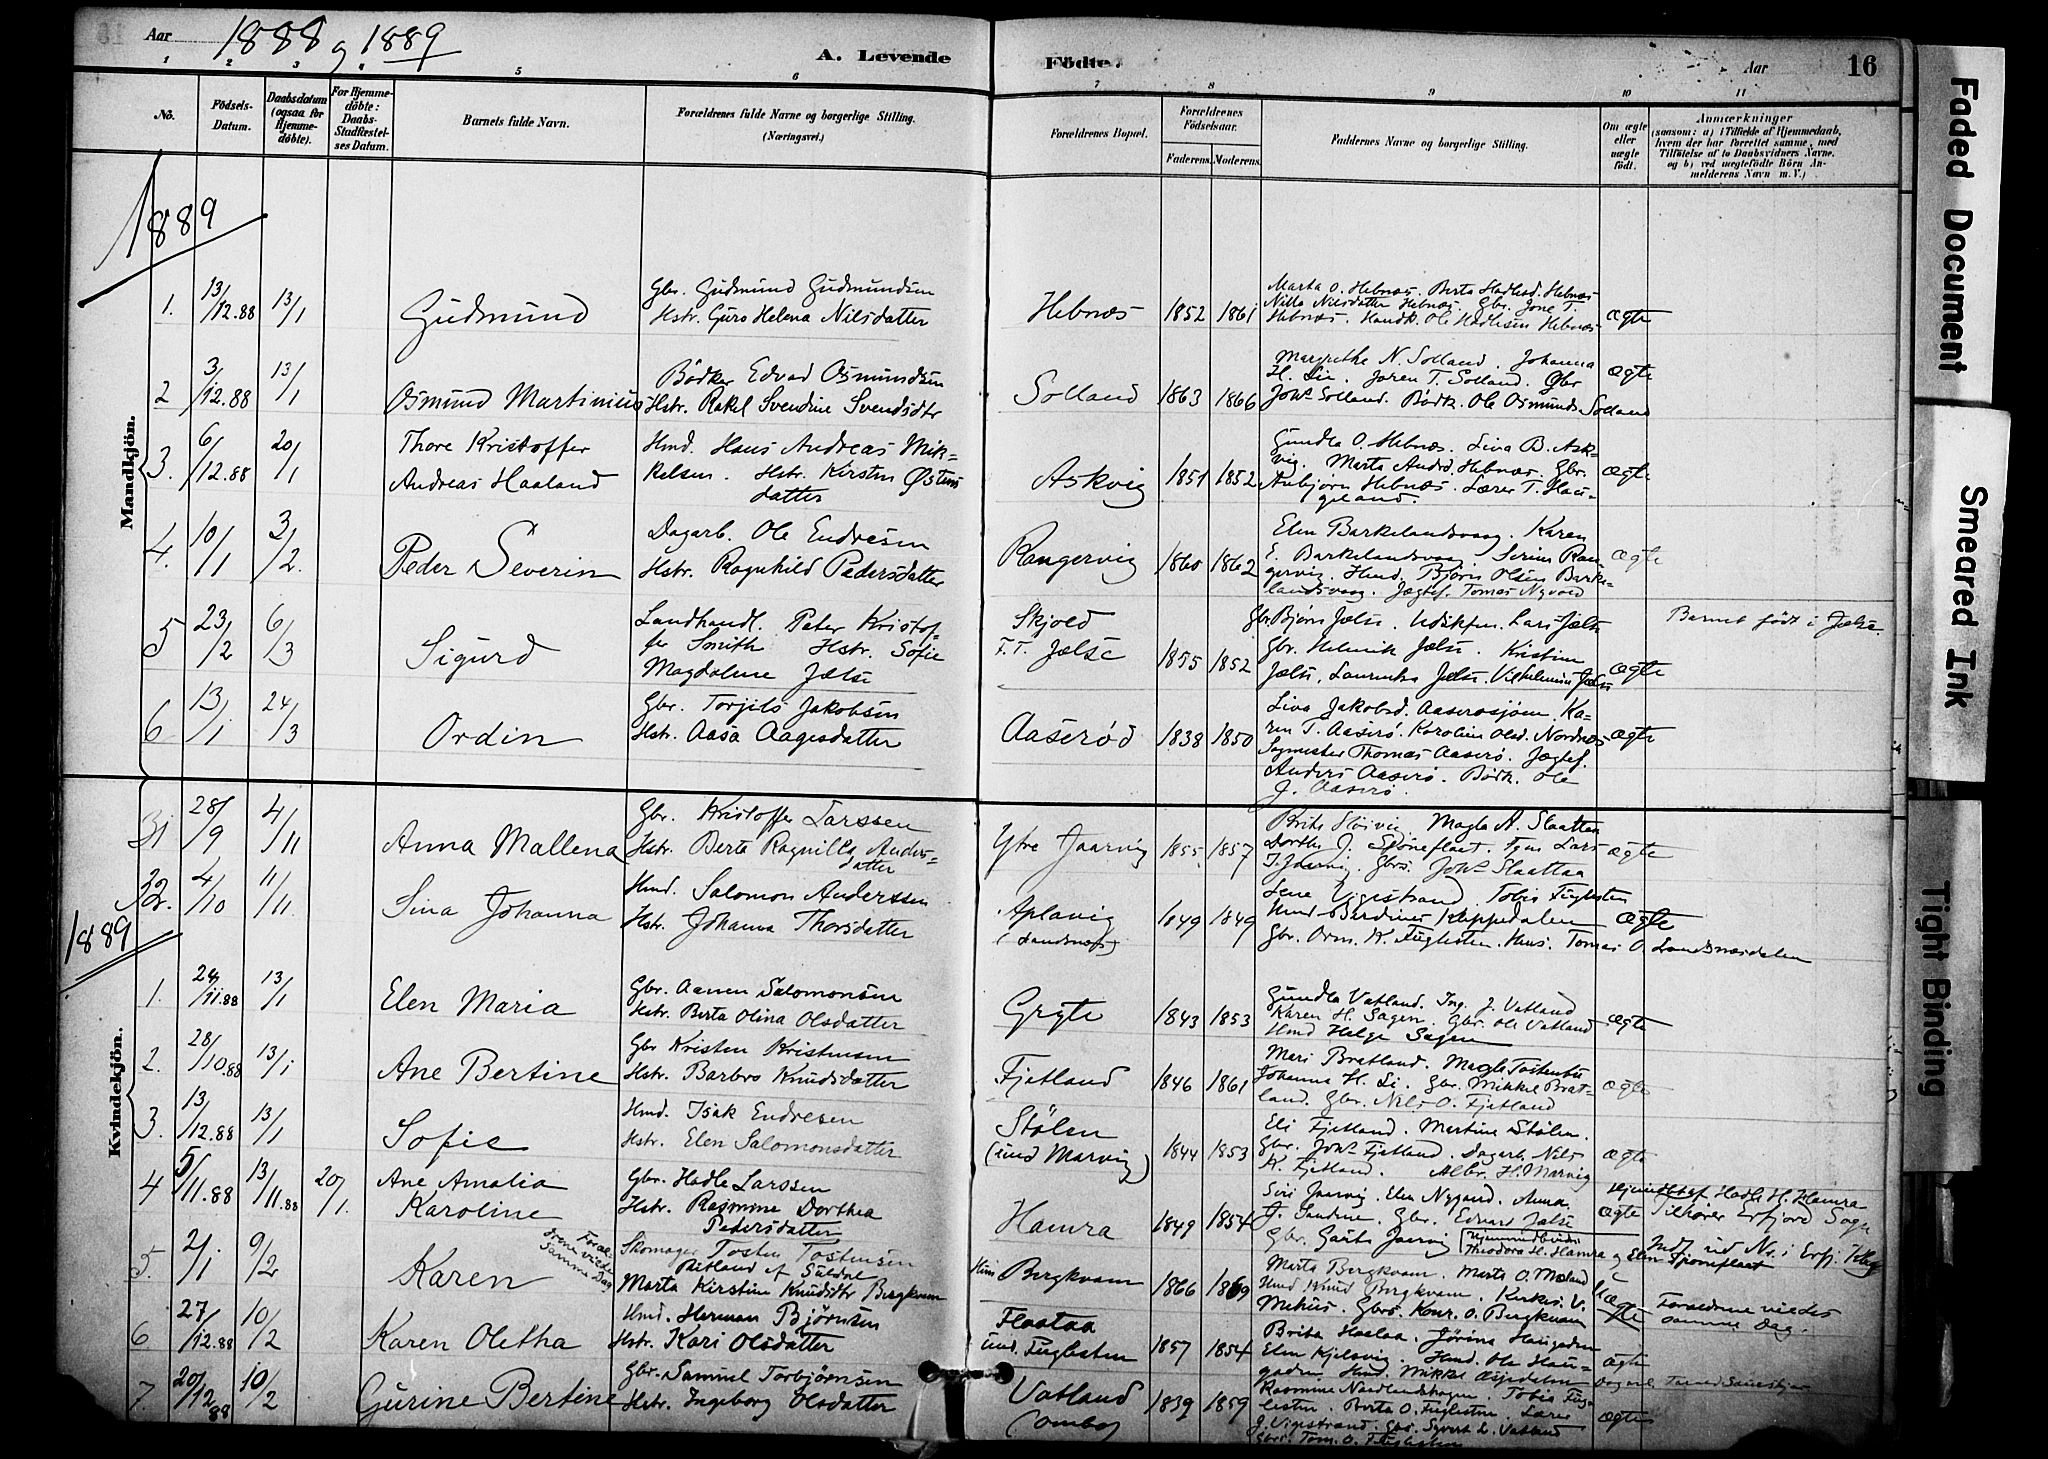 Aar 1888 og 1889 A. Levende Födte. Aar 16
1 2 3 4 5 6 7 8 9 10 11
No.
Födsels-
Datum.
Daabsdatum
(ogsaa for
Hjemme-
døbte).
For Hjemme-
döbte:
Daabs-
Stadfæstel-
ses Datum.
Barnets fulde Navn.
Forældrenes fulde Navne og borgerlige Stilling.
(Næringsvei.)
Forældrenes Bopæl.
Forældrenes
Födselsaar.
Faderens. Moderens.
Faddernes Navne og borgerlige Stilling.
Om ægte
eller
uægte
födt.
Anmærkninger
(saasom: a) i Tilfælde af Hjemmedaab,
hvem der har forrettet samme, med
Tilföielse af to Daabsvidners Navne,
og b) ved uægtefödte Börn An-
melderens Navn m. V.)
1889
Mandkjön.
1. 13/12.88 13/1 Gudmund
Gbr. Gudmund Gudmundsen
Hstr. Guro Helena Nilsdatter
Hebnæs 1852 1861
Marta O. Hebnæs. Berta Hadlsd. Hebnæs
Nilla Nilsdatter Hebnæs. Gbr. Jone T.
Hebnæs. Handk. Ole Hadlesen Hebnæs
ægte
2 3/12.88 13/1 Osmund Martinius
Bödker Edvad Osmundsen
Hstr. Rakel Svendine Svendsdtr
Solland 1863 1866
Margrethe N. Solland. Johanna
H. Lie. Joren T. Solland. Gbr
Johs Solland. Bödk. Ole Osmunds. Solland
ægte
3. 6/12.88 20/1 Thore Kristoffer
Andreas Haaland
Hmd. Hans Andreas Mik-
kelsen. Hstr. Kirsten Østens
datter
Askvig 1851 1852
Gundla O. Hebnæs. Liva B. Ask-
vig. Marta Andrd. Hebnæs. Gbr.
Anbjørn Hebnæs. Lærer T. Hau-
geland.
ægte
4. 10/1 3/2. Peder Severin
Dagarb. Ole Endresen
Hstr. Ragnhild Pedersdatter
Rangervig 1860 1862
Elen Barkelandsvaag. Karen
E. Barkelandsvaag. Serine Ran-
gervig. Hmd. Bjørn Olsen Barke-
landsvaag. Jægtef. Tomas Nyvold
ægte
5 23/2 6/3 Sigurd
Landhandl. Peter Kristof-
fer Smith Hstr. Sofie
Magdalene Jælse
Skjold
F.T. Jælse 1855 1852
Gbr. Bjørn Jælse. Lars Jælse
Gbr. Helmik Jælse. Kristine
Jælse, Laurentse Jælse. Vilhelmine Jælse
ægte
Barnet født i Jælse.
6 13/1 24/3 Ordin
Gbr. Torjils Jakobsen
Hstr. Aasa Aagesdatter
Aaserød 1838 1850
Liva Jakobsd. Aaserøsjøen. Ka-
ren T. Aaserø. Karoline Olsd. Nordnæs
Sagmester Thomas Aaserø. Jægtef.
Anders Aaserø. Bödk. Ole
J. Aaserø.
ægte
Kvindekjön.
31 28/9 4/11 Anna Mallena
Gbr. Kristoffer Larssen
Hstr. Berta Ragnilla Anders-
datter
Ytre Jaarvig 1855 1857
Magla A. Slaattaa
Dorthe J. Lars
T. Jaarvig. Gbrs. Johs Slaattaa
ægte
32. 4/10 11/11 Sina Johanna
Hmd. Salomon Anderssen
Hstr. Johanna Thorsdatter
Aplavig
(Landsnæs) 1849 1849
Lene Vigestrand. Tobia Fuglesten
Hmd Bardines Kleppedalen
Gbr. Orm. K. Fuglesten. Hans. Tomas O. Landsnæsdalen
ægte
1889
1. 24/11.88 13/1 Elen Maria
Gbr. Aanen Salomonsen
Hstr. Berta Olina Olsdatter
Gryte 1843 1853
Gundla Vatland. Ing. J. Vatland
Karen H. Sagen. Gbr. Ole Vatland
Hmd Helge Sagen
ægte
2. 28/10.88 13/1 Ane Bertine
Gbr Kristen Kristensen
Hstr. Barbro Knudsdatter
Fjetland 1846 1861
Mari Bratland. Magla Tostenbø
Johanna H. Li. Gbr. Mikkel Brat-
land. Gbr. Nils O. Fjetland
ægte
3. 13/12.88 13/1 Sofie
Hmd. Isak Endresen
Hstr. Elen Salomonsdatter
Stølen
(und Marvig) 1844 1853
Eli Fjetland. Martine Stølen.
Gbr. Johs Fjetland. Dagarb. Nils
K. Fjetland. Albr. H. Marvig
ægte
4 5/11.88 13/11.88 20/1. Ane Amalia
Karoline
Gbr. Hadle Larssen
Hstr. Rasmine Dorthea
Pedersdatter
Hamra 1849 1854
Siri Jaarvig. Elen Nygaard. Anna
J. Sandene. Gbr. Edvard Jælse
Gbr. Jaarvig
Theodora H. Hamra og Elen
ægte
Hjemdøbt af Hadle H. Hamra
Tilhører Erfjord Sogn
5. 2/1 9/2 Karen
Foræl-
drene viede
samme Dag
Skomager Tosten Tostensen
Ritland af Suldal
Marta Kirstine Knudsdtr Bergkvam
Bergkvam 1866 1869
Marta Bergkvam. Marta O. Moland
Hmd Knud Bergkvam.
Mehus. Gbrs. Konr. O. Bergkvam
Uægte
Forældrene viedes
samme Dag.
6 27/12.88 10/2 Karen Oletha
Hmd. Herman Bjørnsen
Hstr. Kari Olsdatter
Flaataa
und. Fuglesten 1857 1854
Brita Haslaa. Jørina Haugaden
Elen Kjelavig. Hmd. Ole Hau-
gaden. Hmd. Mikkel
ægte
7. 20/12 88 10/2 Gurine Bertine
Gbr. Samuel Torbjørnsen
Hstr. Ingeborg Olsdatter
Vatland
(ombo) 1839 1859
Rasmine Nordlandshagen. Tobia Fug-
lesten. Berta O. Fuglesten. Lærer
J. Vigestrand. Gbr. Syvert L. Vatland
Gbr. Tom. O. Fuglesten
ægte
Faded Document
Smeared Ink
Tight Binding